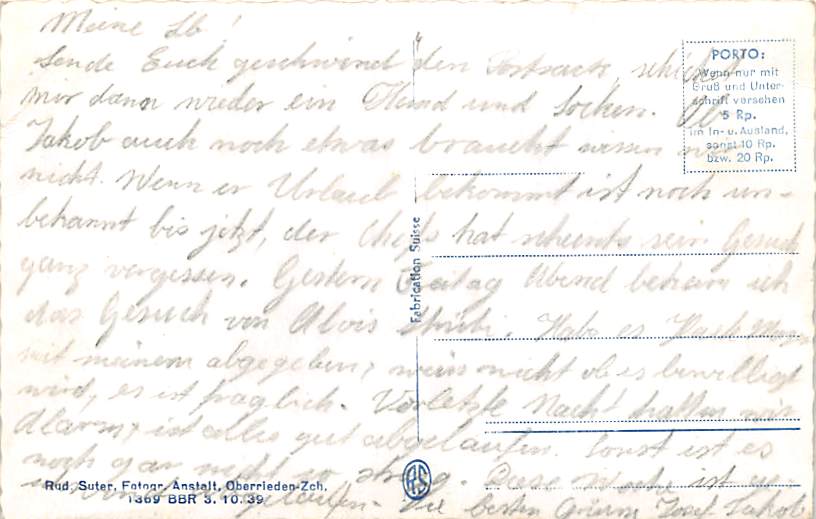 Meine Lb!
Sende Euch geschwind den Postsack, schicket
mir dann wieder ein Hemd und Socken. Ob
Jakob auch noch etwas braucht wissen wir
nicht. Wenn er Urlaub bekommt ist noch un-
bekannt bis jetzt, der Chef hat scheints sein Gesuch
ganz vergessen. Gestern Freitag Abend bekam ich
das Gesuch von Alois. Habe es
mit meinem abgegeben, weiss nicht ob es bewilligt
wird, es ist fraglich. Vorletzte Nacht hatten wir
Alarm, ist alles gut abgelaufen. Sonst ist es
noch gar nicht so streng. Diese Woche ist
Die besten Grüsse Josef Jakob
PORTO:
Wenn nur mit
Gruß und Unter-
schrift versehen
5 Rp.
im In- u. Ausland,
sonst 10 Rp.
bzw. 20 Rp.
Fabrication Suisse
RS
Rud. Suter, Fotogr. Anstalt, Oberrieden-Zch.
1369 BBR 3. 10. 39